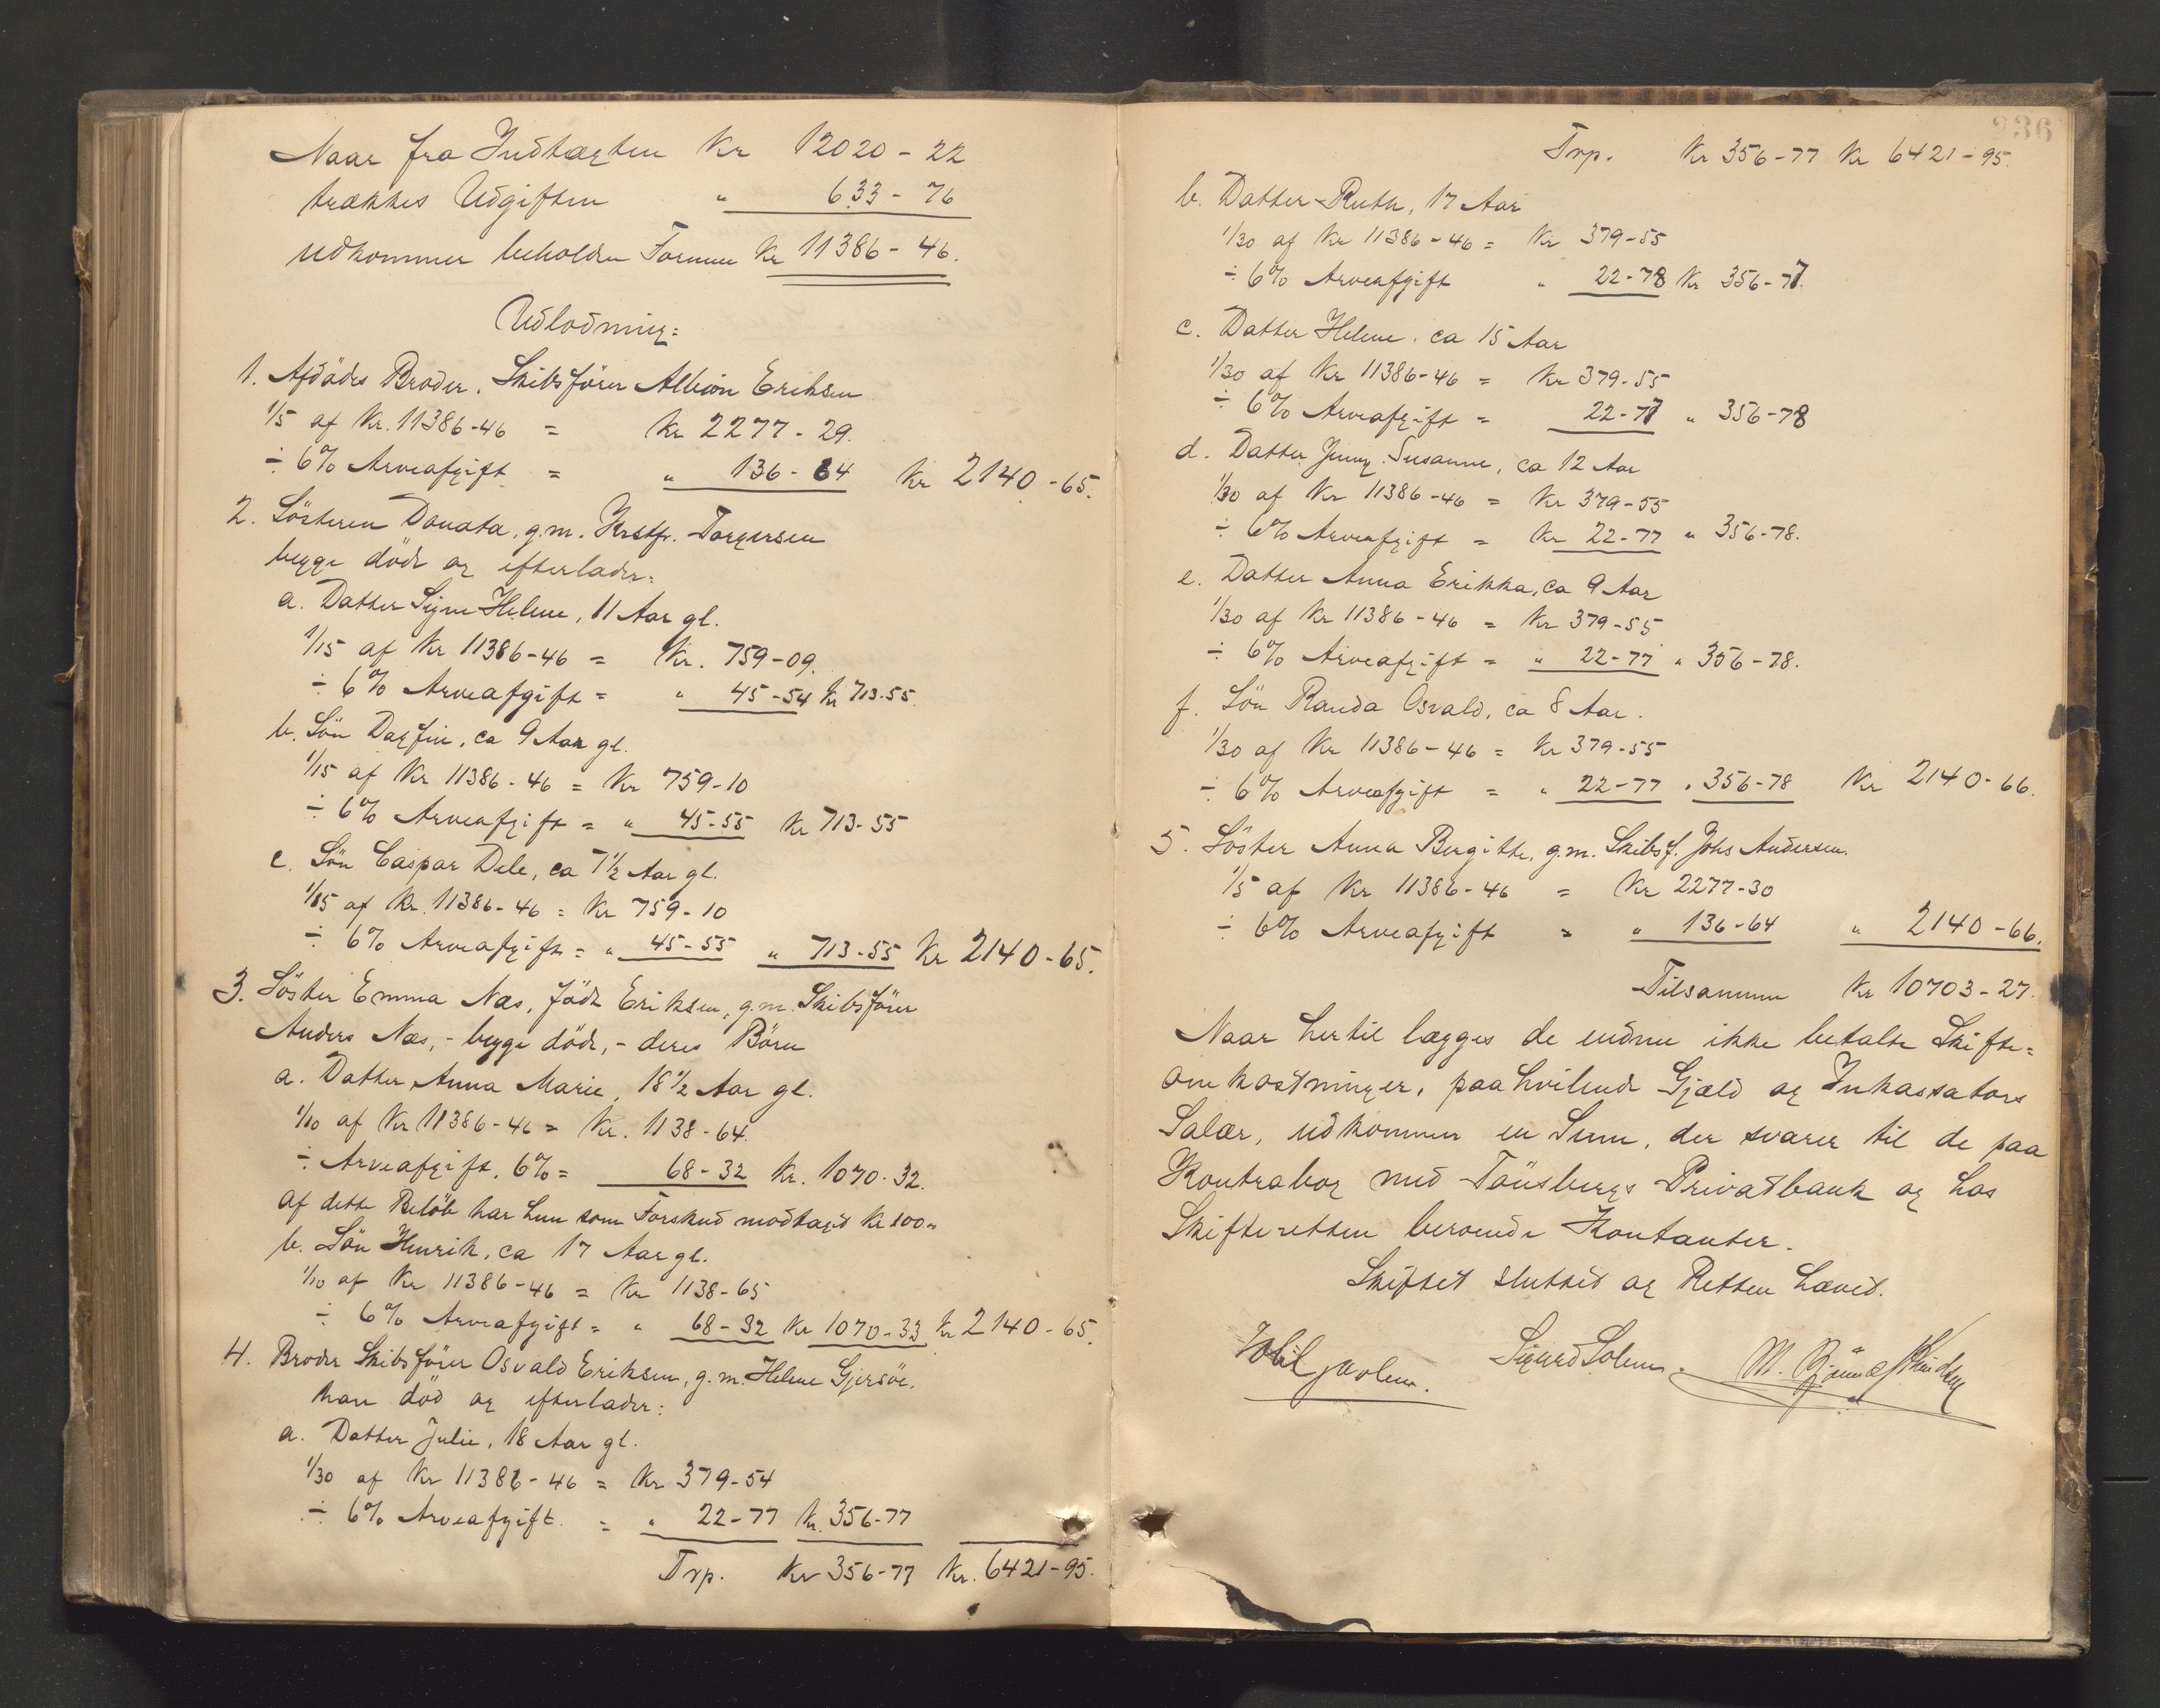 Naar fra Indtægten Kr 12020-22
trækkes Udgiften " 633-76
udkommer beholden Formue Kr 11386-46.
Udlodning:
1. Afdödes Broder, Skibsförer Albion Eriksen
1/5 af Kr. 11386-46 = Kr 2277-29.
÷ 6% Arveafgift = " 136-64 Kr 2140-65.
2. Sösteren Donata, g.m. Krstf. Torgersen
begge döde og efterlader:
a. Datter Signe Helene, 11 Aar gl.
1/15 af Kr 11386-46 = Kr. 759-09.
÷ 6% Arveafgift = " 45-54 Kr 713-55.
b. Sön Dagfin, ca 9 Aar gl.
1/15 af Kr 11386-46 = Kr 759-10
÷ 6% Arveafgift = " 45-55 Kr 713-55
c. Sön Caspar Dele, ca 7 1/2 Aar gl.
1/15 af Kr. 11386-46 = Kr 759-10
÷ 6% Arveafgift = " 45-55 " 713-55 Kr 2140-65.
3. Söster Emma Næs, född Eriksen, g.m. Skibsförer
Anders Næs, - begge döde, - deres Börn
a. Datter Anna Marie, 18 1/2 Aar gl.
1/10 af Kr 11386-46 = Kr. 1138-64.
÷ Arveafgift. 6% = 68-32 Kr. 1070-32.
Af dette Belöb har hun som Forskud modtaget Kr 100,,
b. Sön Henrik, ca 17 Aar gl.
1/10 af Kr 11386-46 = Kr 1138-65
÷ 6% Arveafgift = " 68-32 Kr 1070-33 Kr 2140-65.
4. Broder Skibsförer Osvald Eriksen, g.m. Helene Gjersöe.
han död og efterlader:
a. Datter Julie, 18 Aar gl.
1/30 af Kr 11386-46 = Kr 379-54
÷ 6% Arveafgift. = " 22-77 Kr. 356-77
Trp. Kr 356-77 Kr. 6421-95.
236
Trp. Kr 356-77 Kr 6421-95.
b. Datter Ruth, 17 Aar
1/30 af Kr 11386-46 = Kr 379-55
÷ 6% Arveafgift " 22-78 Kr 356-77.
c. Datter Helene, ca 15 Aar
1/30 af Kr 11386-46 = Kr 379-55
÷ 6% Arveafgift = 22-77 " 356-78
d. Datter Jenny Susanne, ca 12 Aar
1/30 af Kr 11386-46 = Kr 379-55
÷ 6% Arveafgift = Kr 22-77 " 356-78.
e. Datter Anna Erikka, ca 9 Aar
1/30 af Kr 11386-46 = Kr 379-55
÷ 6% Arveafgift = " 22-77 " 356-78.
f. Sön Randa Osvald, ca 8 Aar.
1/30 af Kr 11386-46 = Kr 379-55
÷ 6% Arveafgift = " 22-77 " 356-78 Kr 2140-66.
5. Söster Anna Birgitte, g.m. Skibsf. Johs Andersen.
1/5 af Kr 11386-46 = Kr 2277-30
÷ 6% Arveafgift = " 136-64 " 2140-66.
Tilsammen Kr 10703-27.
Naar hertil lægges de endnu ikke betalte Skifte=
omkostninger, paahvilende Gjæld og Inkassators
Salær, udkommer en Sum, der svarer til de paa
Kontrabog med Tönsbergs Privatbank og hos
Skifteretten beroende Kontanter.
Skiftet sluttet og Retten hævet.
Sigurd Solum.